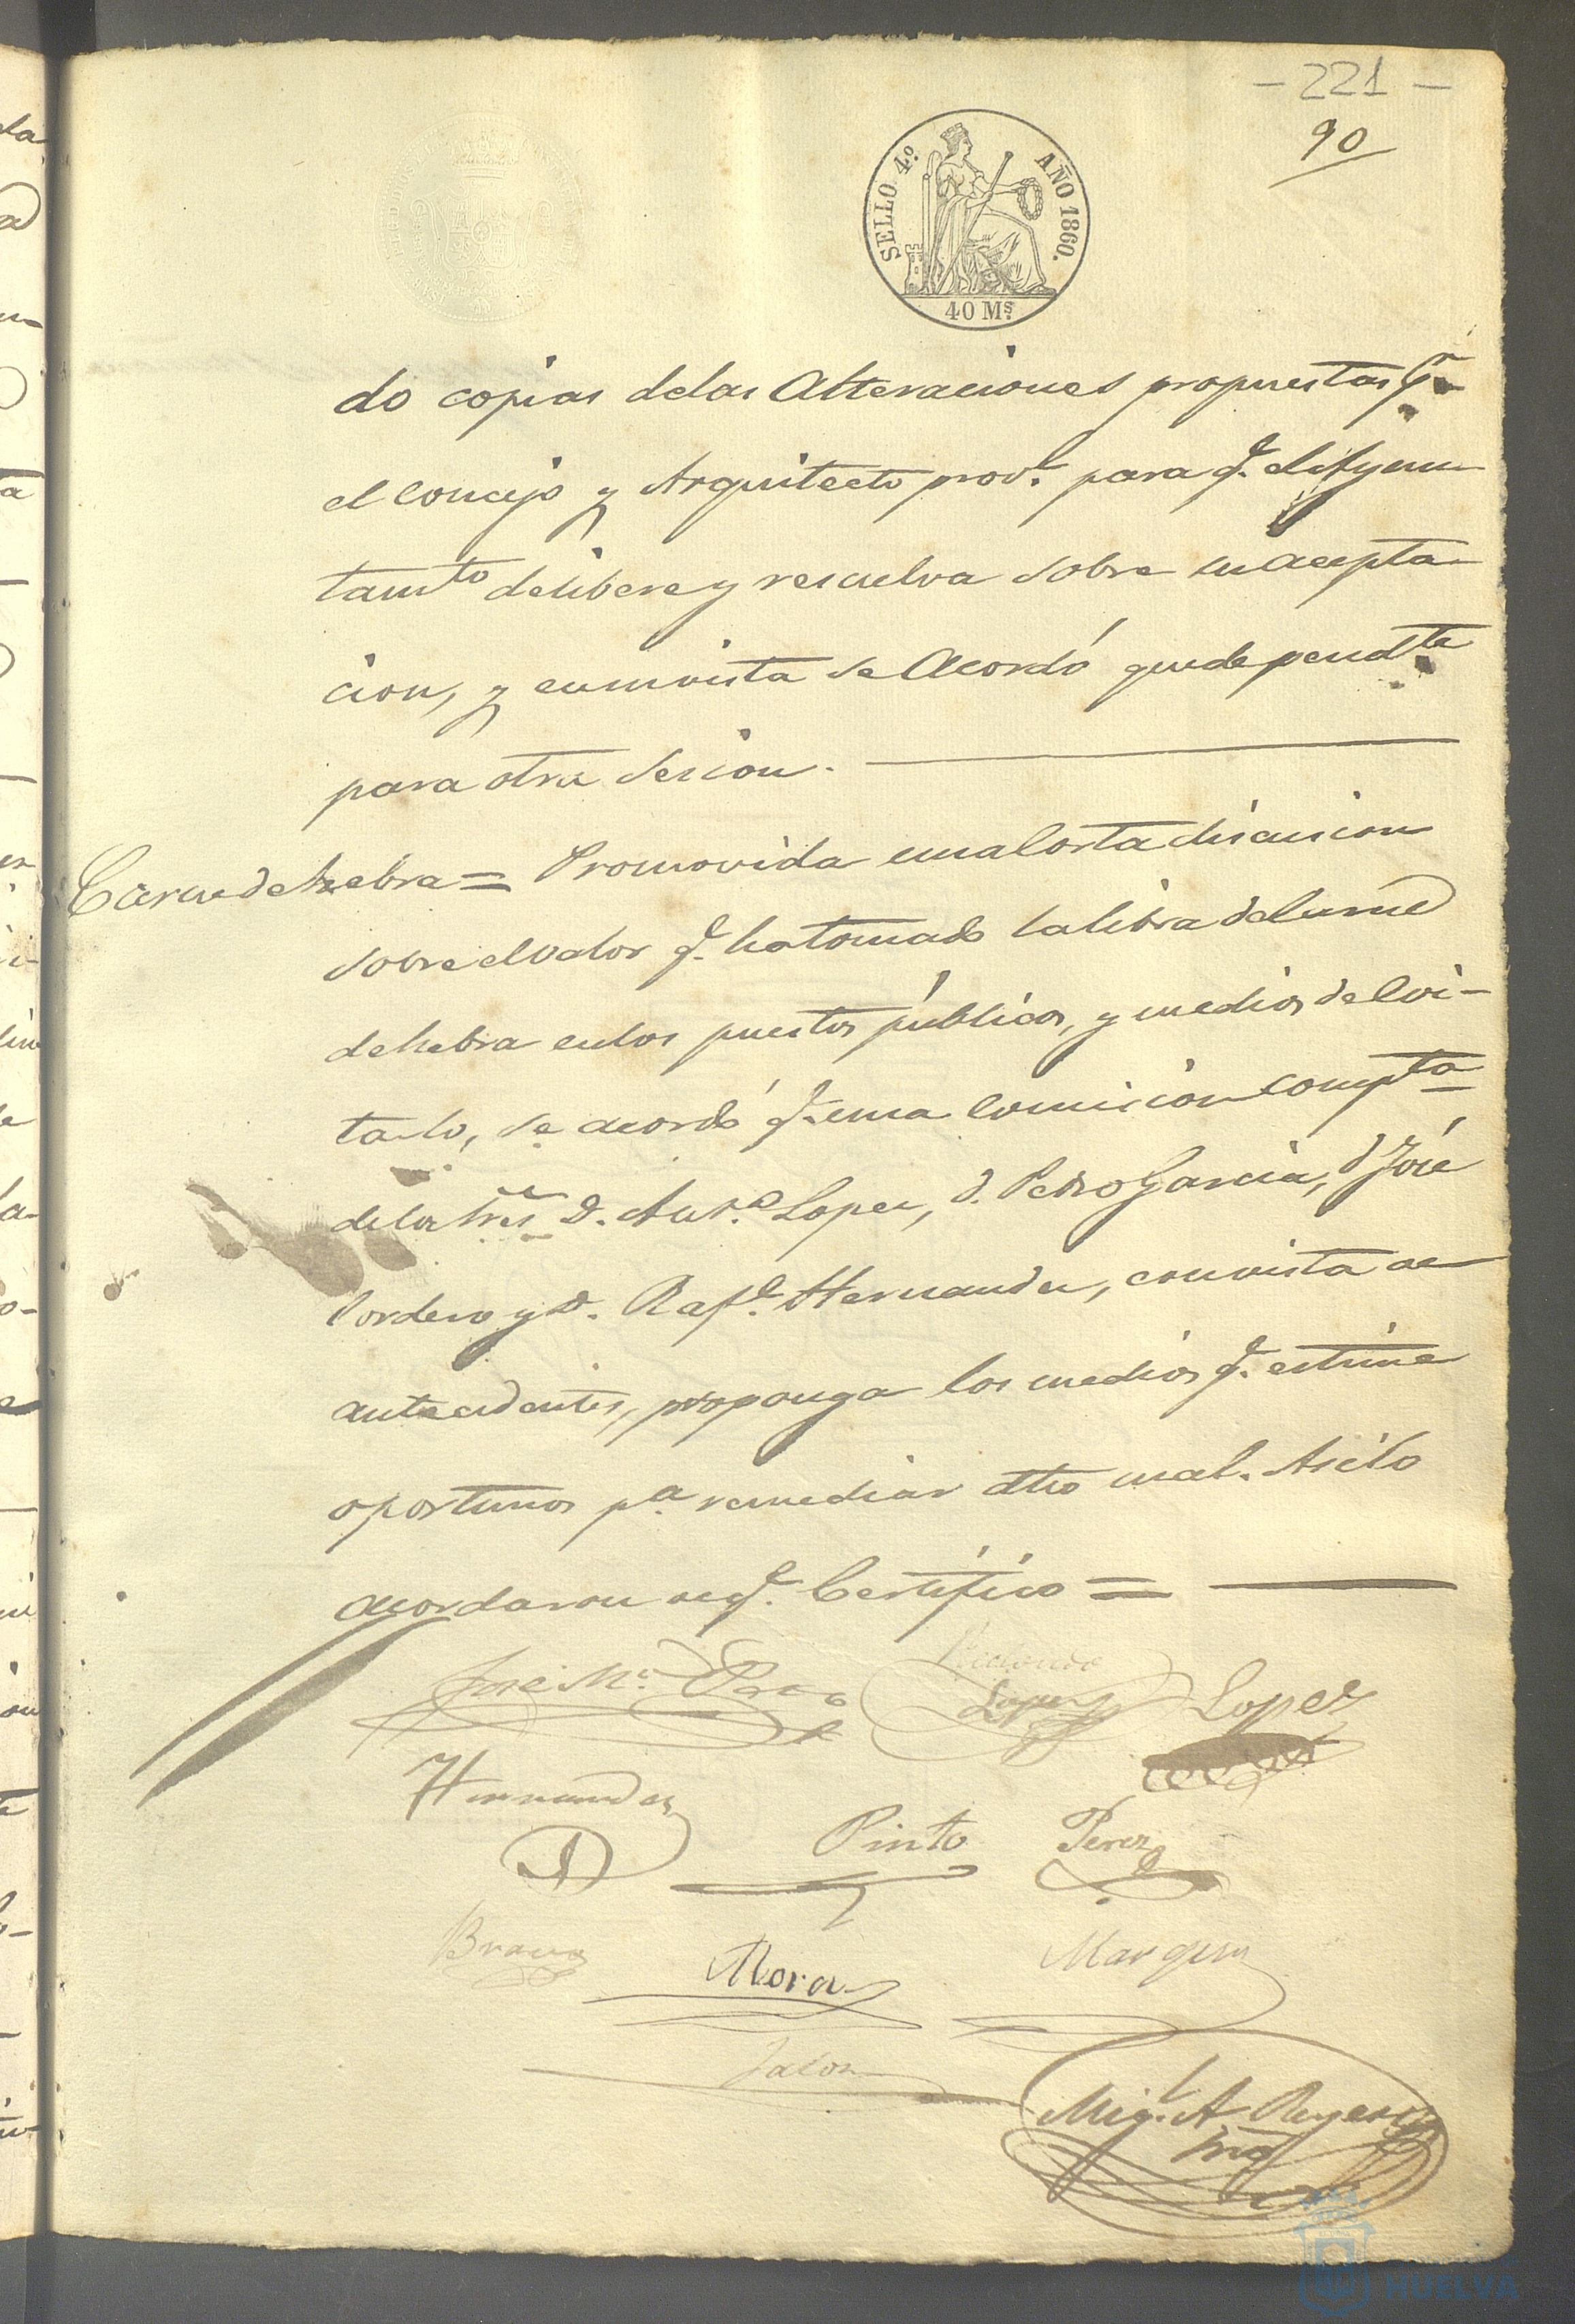 - 221 -
90
SELLO 4.º AÑO 1860.
40 Ms.
do copias delas Alteraciones propuestas pr.
el Concejo y Arquitecto prov.l para q.e el Ayun
tamto delibere y resuelva sobre su acepta
cion, y en su vista se Acordó quede pendte
para otra sesion.
Carne de hebra = Promovida una Corta discusion
sobre el valor q.e ha tomado la libra de Carne
de hebra en los puestos públicos, y medios de Evi-
tarlo, se acordó q.e una Comision compta
de los Sres D. Ant.o Lopez, D. Pedro Garcia, D José
Cordero y D. Raf.l Hernandez, con vista de
antecedentes, proponga los medios q.e estime
oportunos pa. remediar dho mal. Asi lo
acordaron de q.e Certifico =
José M.a Perez
Redondo
Lopez
Lopez
Hernandez
Pinto
Perez
Bravo
Mora
Marquez
Jalon
Mig.l A. Reyes
Srio
HUELVA